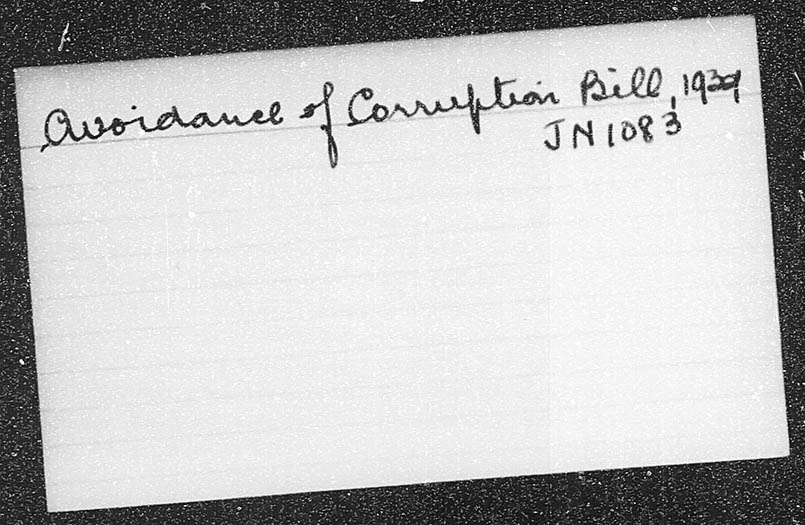 Avoidance of Corruption Bill, 1939
JN 1083